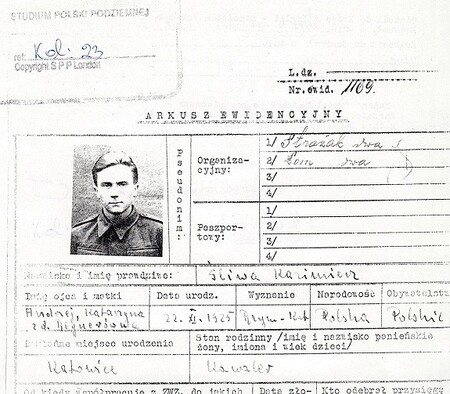 STUDIUM POLSKI PODZIEMNEJ
ref: Kol: 23
Copyright S P P London
L.dz.
Nr.ewid. 1169.
ARKUSZ EWIDENCYJNY
Pseudonim:
Organiza-
cyjny:
1/ Strażak dwa
2/ Łom dwa
3/
4/
Poszpor-
towy:
1/
2/
3/
4/
Nazwisko i imię prawdziwe: Śliwa Kazimierz
Imię ojca i matki
Data urodz.
Wyznanie
Narodowość
Obywatelstw
Andrzej, Katarzyna
z d.
22. XI. 1925
Rzym-Kat
Polska
Polskie
Dokładne miejsce urodzenia
Stan rodzinny /imię i nazwisko panieńskie
żony, imiona i wiek dzieci/
Katowice
Kawaler
Od kiedy współpracuje z ZWZ, do jakich
Data zło-
Kto odebrał przysięgę